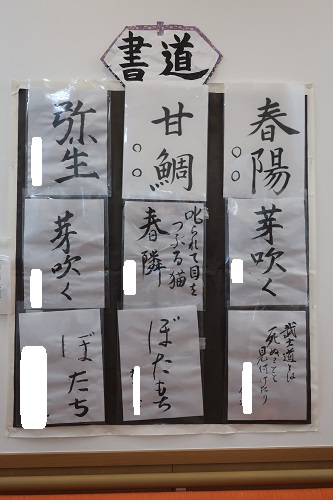 書道
春陽
甘鯛
弥生
芽吹く
叱られて目を
つぶる猫
春隣
芽吹く
武士道とは
死ぬことと
見付けたり
ぼたもち
ぼたち